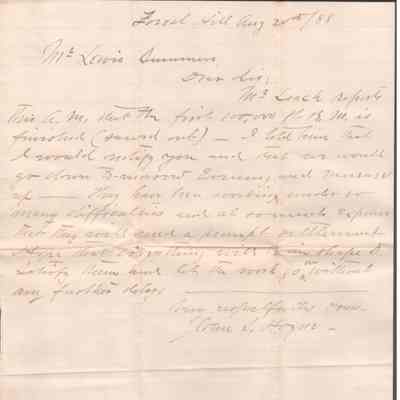 Forest Hill Aug 20th/88
Mr Lewis Summers
Dear Sir:
Mr Leach reports
this A.M. that the first 100,000 ft B.M. is
finished (sawed out) — I told him that
I would notify you and that we would
go down to-morrow Evening and measure
up — They have been working under so
many difficulties and at so much expense
that they will need a prompt settlement
I hope that everything will be in shape to
satisfy them and let the work go on without
any further delay.
Very respectfully yours